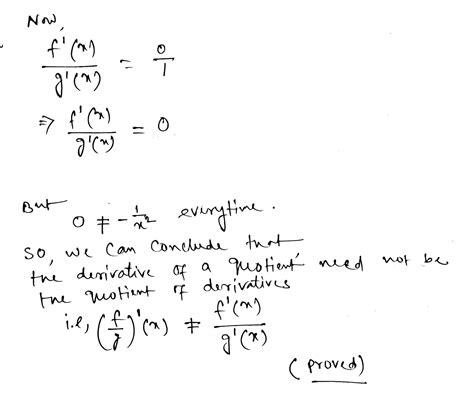 Now,
f'(x)/g'(x) = 0/1
⇒ f'(x)/g'(x) = 0
But 0 ≠ -1/x² everytime.
So, we can conclude that
the derivative of a quotient need not be
the quotient of derivatives
i.e, (f/g)'(x) ≠ f'(x)/g'(x)
(proved)